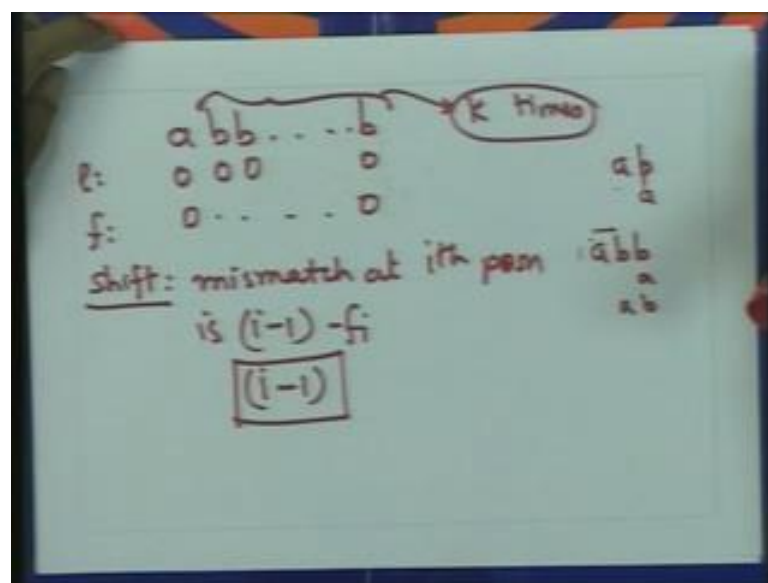 k times
a b b . . . . b
l: 0 0 0 0
f: 0 . . . . . 0
shift: mismatch at ith posn
is (i-1) - fi
(i-1)
a b
a
a b b
a
a b